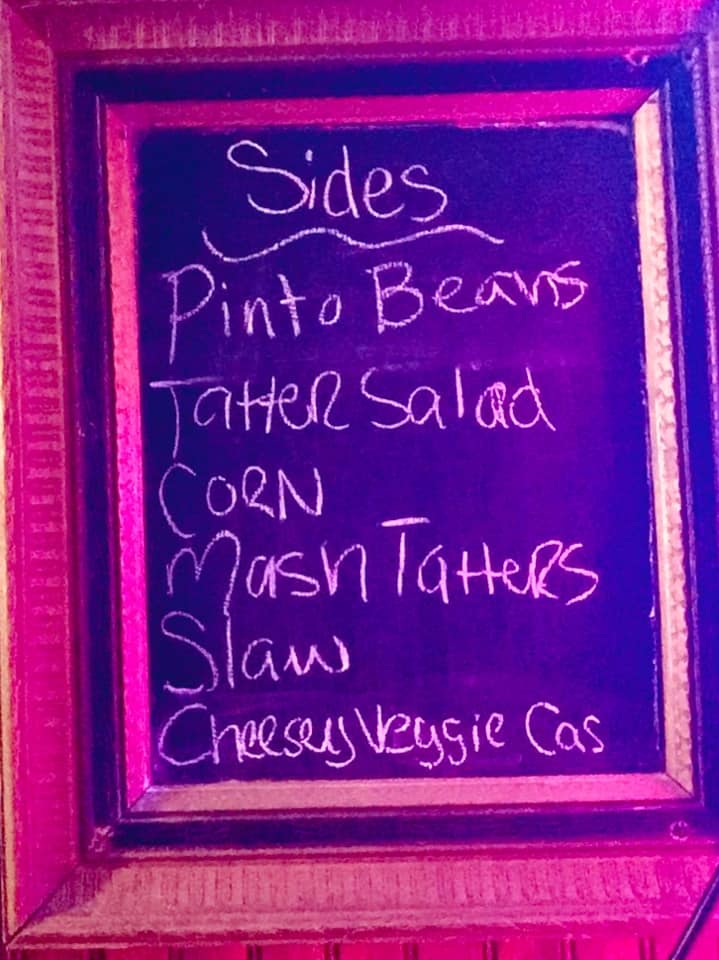 Sides
Pinto Beans
Tatter Salad
CORN
Mash Tatters
Slaw
Cheesey Veggie Cas